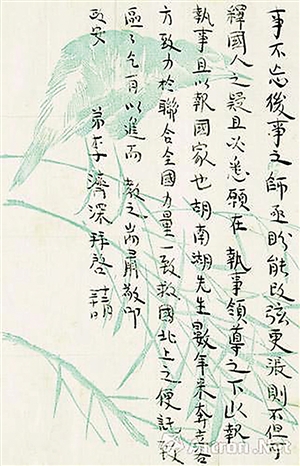 事不忘後事之師亟盼能改弦更張則不但可
釋國人之疑且必悉願在 執事領導之下以報
執事且以報國家也胡南湖先生數年來奔走各
方致力於聯合全國力量一致救國北上之便託致
區區乞有以進而 教之尚肅敬叩
政安 弟李濟深拜啓
Artron.Net